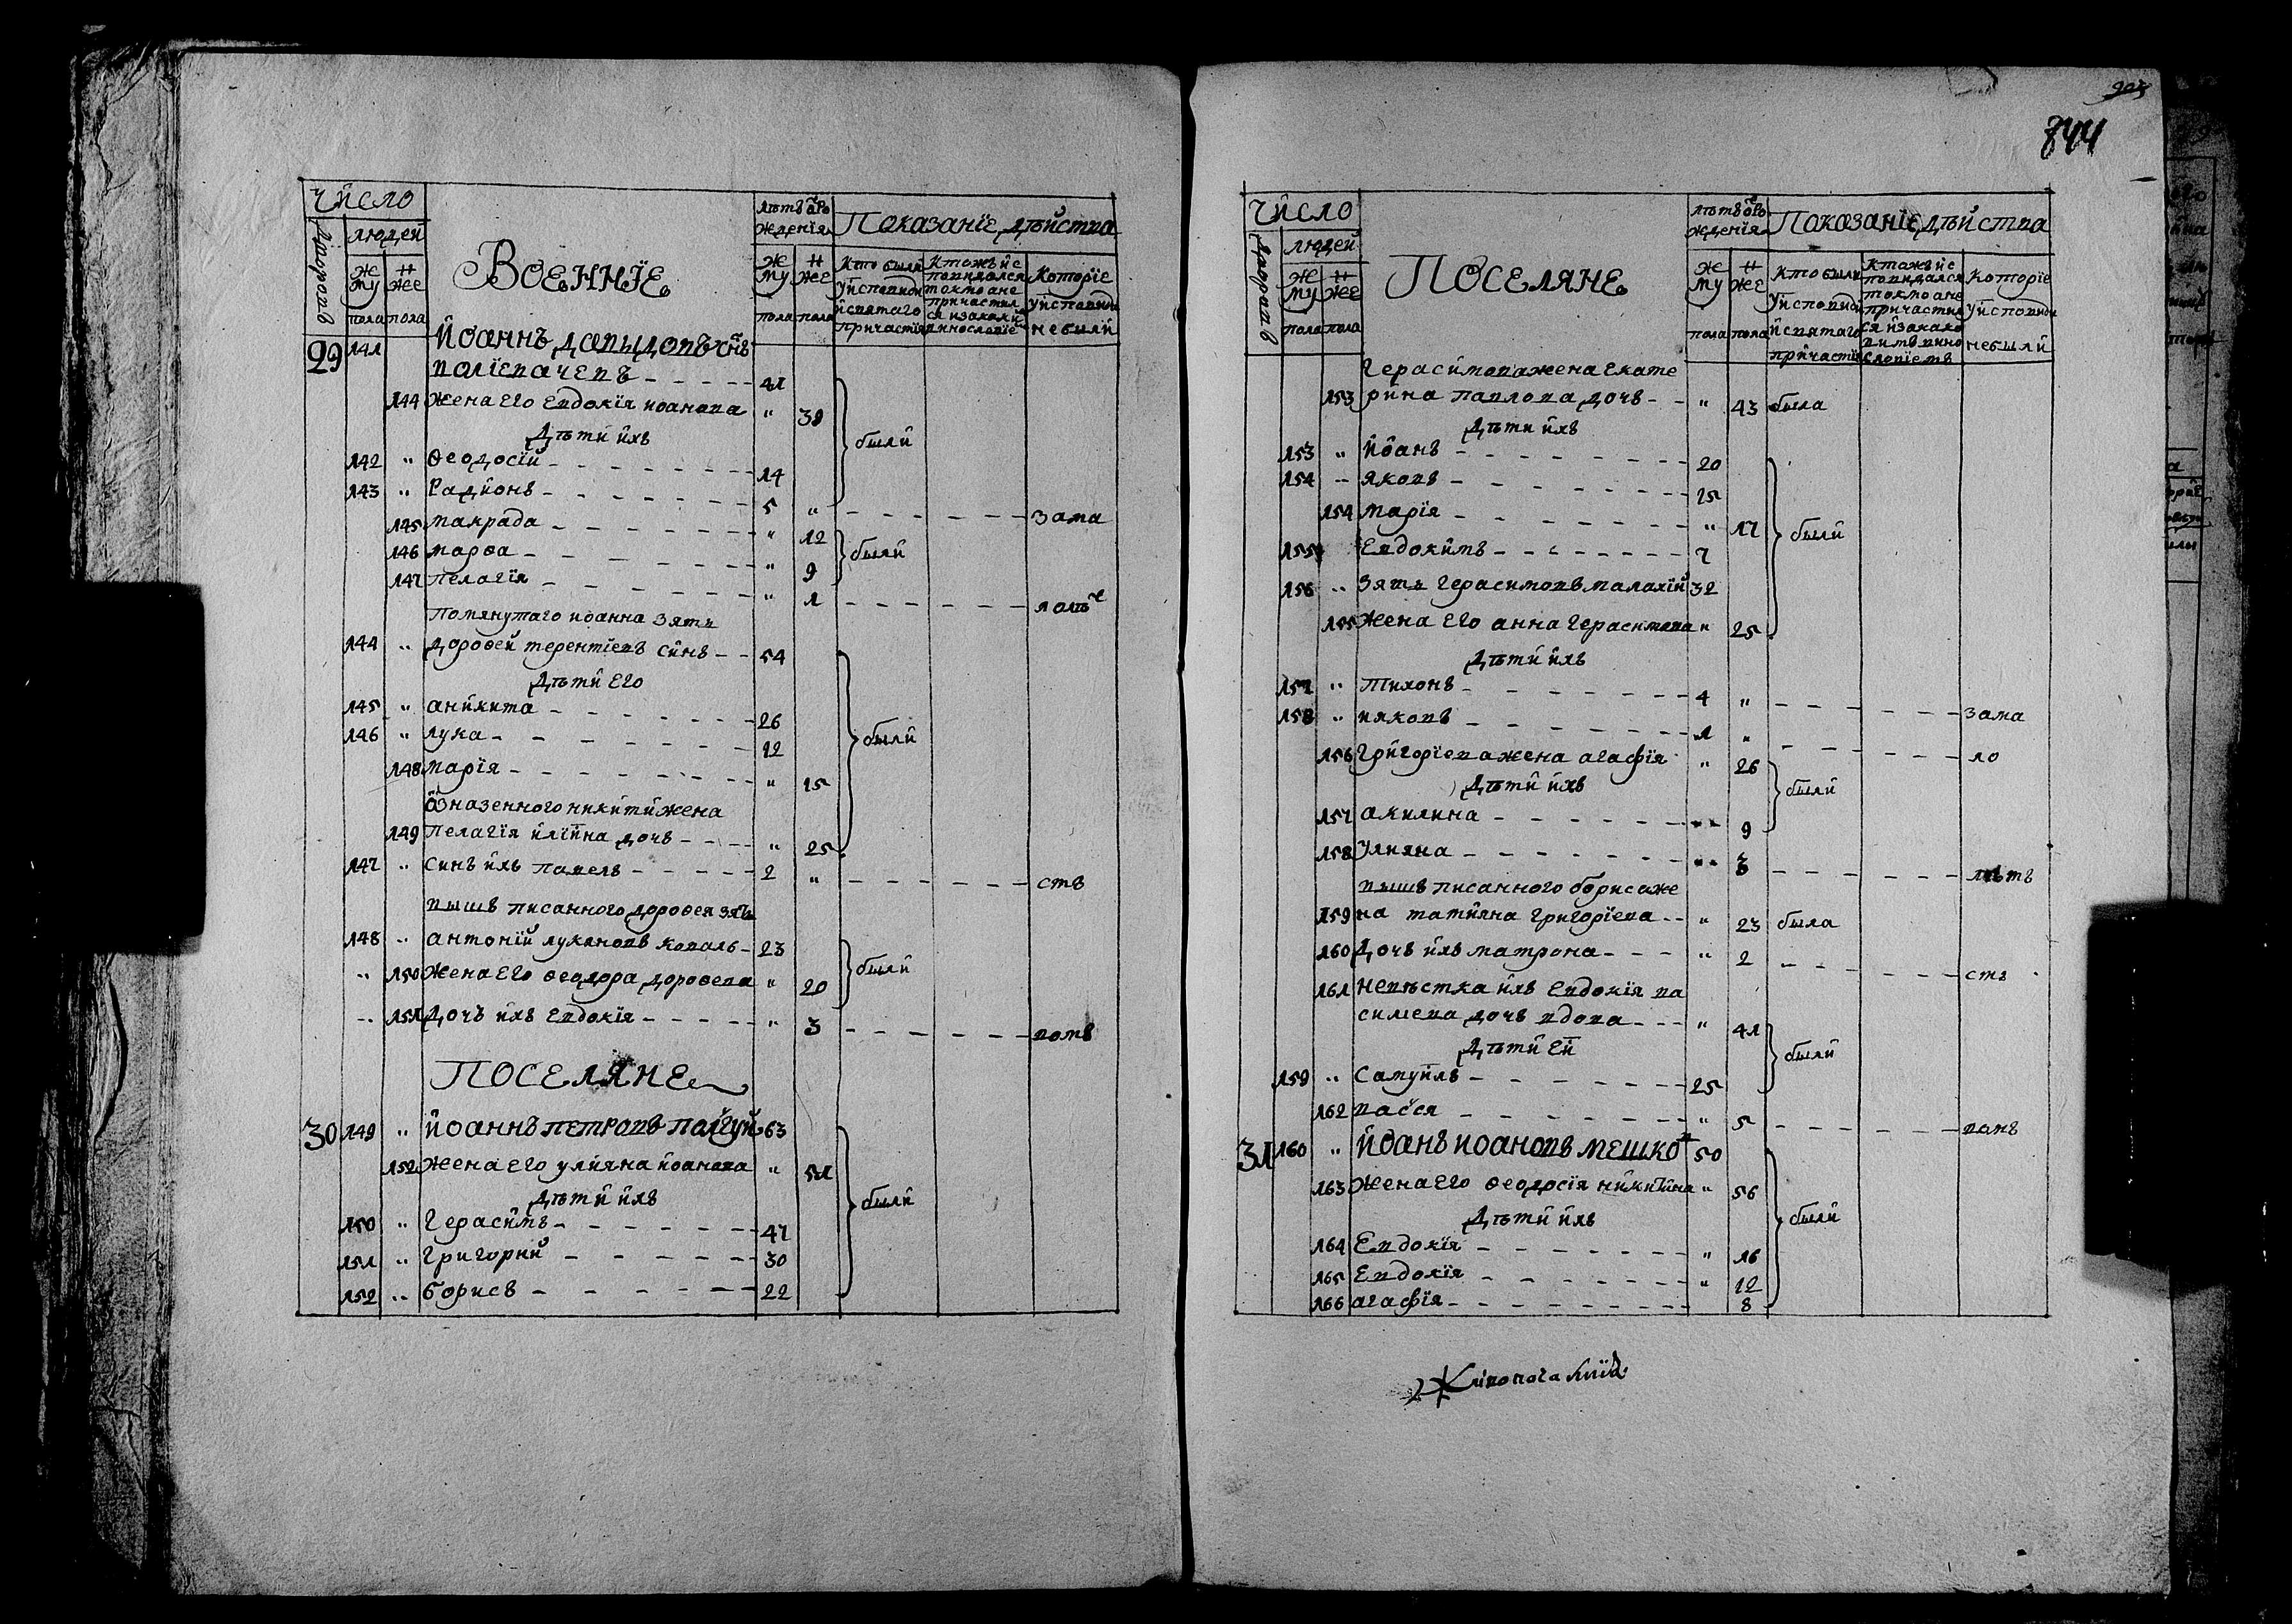 Число
Дворовъ
людей
муже
женн
пола
пола
Военнїе
лѣтъ ѿ ро
жденїя
муже
женн
пола
пола
Показанїе дѣйства
Кто были
у исповѣди
и святаго
причастїя
Кто жъ ис
повѣдался
токмо а не
причастил
ся и за какой
винословїе
Которїе
у исповѣди
не были
29 141 Иоаннъ давыдовъ снъ
волїевачевъ - - - - - 41
144 жена его Евдокїя иоанова " 39
Дѣти ихъ
были
142 " Ѳеодосїй - - - - - - - 14
143 " Радионъ - - - - - - - 5 " - - - - - - зама
145 макрада - - - - - - - " 12
146 марѳа - - - - - - - " 9 были
147 пелагїя - - - - - - - " 1 - - - - - - лолѣ
помянутаго иоанна зять
144 " дороѳей терентїевъ синъ - - 54
Дѣти Его
145 " аникита - - - - - - - 26
146 " лука - - - - - - - 12 были
148 марїя - - - - - - - " 15
ѡзназенного никити жена
149 пелагїя илїина дочъ - - - - " 25
147 " синъ ихъ павелъ - - - - - 2 " - - - - - - ствъ
вышъ писанного дороѳея зять
148 " антонїй лукяновъ коваль - 23
" 150 жена его ѳеодора дороѳева " 20 были
" 151 Дочъ ихъ Евдокїя - - - - - " 3 - - - - - - вотъ
ПОСЕЛЯНЕ
30 149 " Иоаннъ петровъ 63
152 жена Его улияна иоанова " 51
Дѣти ихъ
были
150 " Герасимъ - - - - - - - 47
151 " Григорий - - - - - - 30
152 " борисъ - - - - - - 22
844
Число
Дворовъ
людей
муже
женн
пола
пола
ПОСЕЛЯНЕ
лѣтъ ѿ ро
жденїя
муже
женн
пола
пола
Показанїе дѣйства
Кто были
у исповѣди
и святаго
причастїя
Кто жъ ис
повѣдался
токмо а не
причастил
ся и за како
вимъ вино
словїемъ
Которїе
у исповѣди
не были
Герасимова жена Екате
153 рина павлова дочъ - - " 43 была
Дѣти ихъ
153 " Иоанъ - - - - - - - - 20
154 " яковъ - - - - - - - 25
154 марїя - - - - - - - " 17 были
155 Евдокимъ - - - - - - - 7
156 " зять герасимовъ малахїй 32
155 жена Его анна герасимова " 25
Дѣти ихъ
157 " Тихонъ - - - - - - - 4 " - - - - - - зама
158 " ияковъ - - - - - - - 1 " - - - - - - ло
156 Григорїева жена агафїя " 26
Дѣти ихъ
были
157 акилина - - - - - - - " 9
158 улияна - - - - - - - " 3 - - - - - - лѣтъ
вышъ писанного бориса же
159 на татияна григорїева - - " 23 была
160 Дочъ ихъ матрона - - - " 2 - - - - - - ств
161 невѣстка ихъ Евдокїя ва
силїева дочъ вдова - - - " 41
Дѣти Ей
были
159 " Самуилъ - - - - - - - 25
162 васся - - - - - - - " 5 - - - - - - вонъ
31 160 " Иоанъ иоановъ мешко 50
163 Жена его ѳеодосїя никитина " 56
Дѣти ихъ
были
164 Евдокїя - - - - - - - " 16
165 Евдокїя - - - - - - - " 12
166 агафїя - - - - - - - - 8